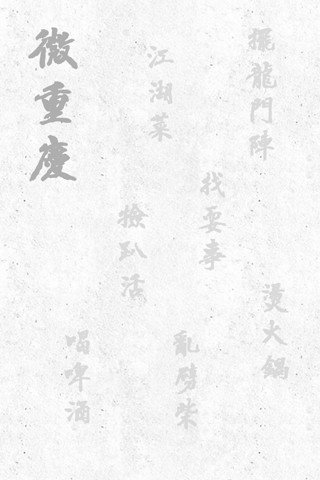 微重慶
江湖菜
擺龍門陣
撿趴活
找耍事
燙火鍋
喝啤酒
亂劈柴